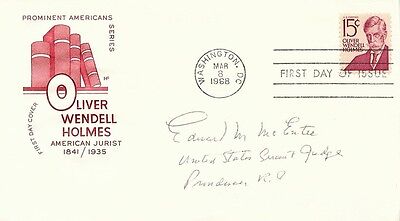 PROMINENT AMERICANS
SERIES
HF
FIRST DAY COVER
OLIVER
WENDELL
HOLMES
AMERICAN JURIST
1841/1935
WASHINGTON, DC
MAR
8
1968
FIRST DAY OF ISSUE
15¢
OLIVER
WENDELL
HOLMES
Edward M. McEntee
United States Circuit Judge
Providence R.I